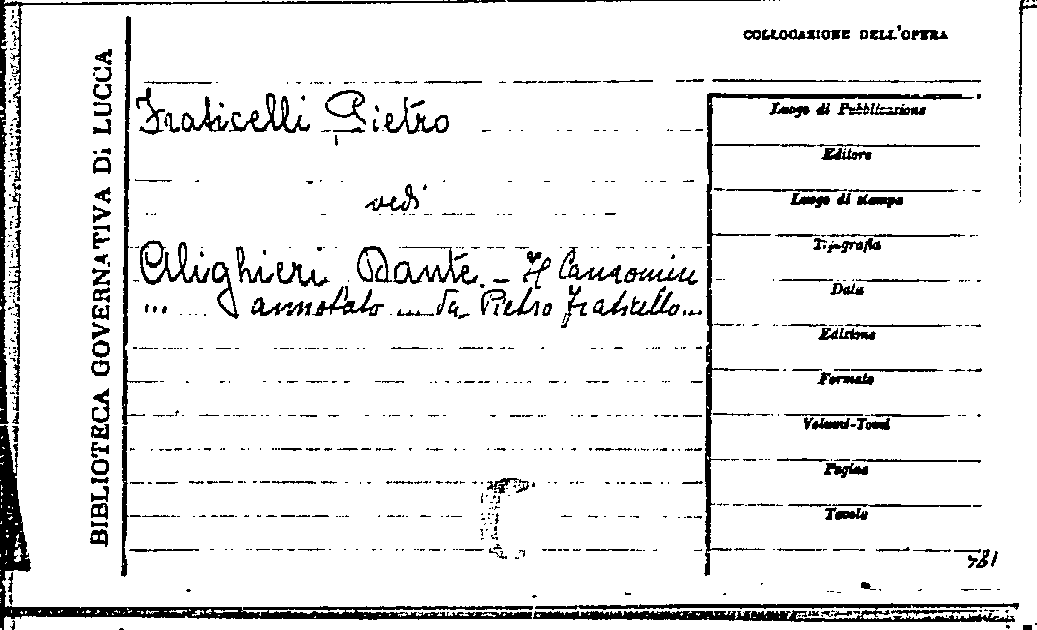 BIBLIOTECA GOVERNATIVA DI LUCCA
COLLOCAZIONE DELL'OPERA
Fraticelli Pietro
vedi
Alighieri Dante - Il Canzoniere
... annotato ... da Pietro Fraticello...
Luogo di Pubblicazione
Editore
Luogo di stampa
Tipografia
Data
Edizione
Formato
Volumi-Tomi
Pagine
Tavole